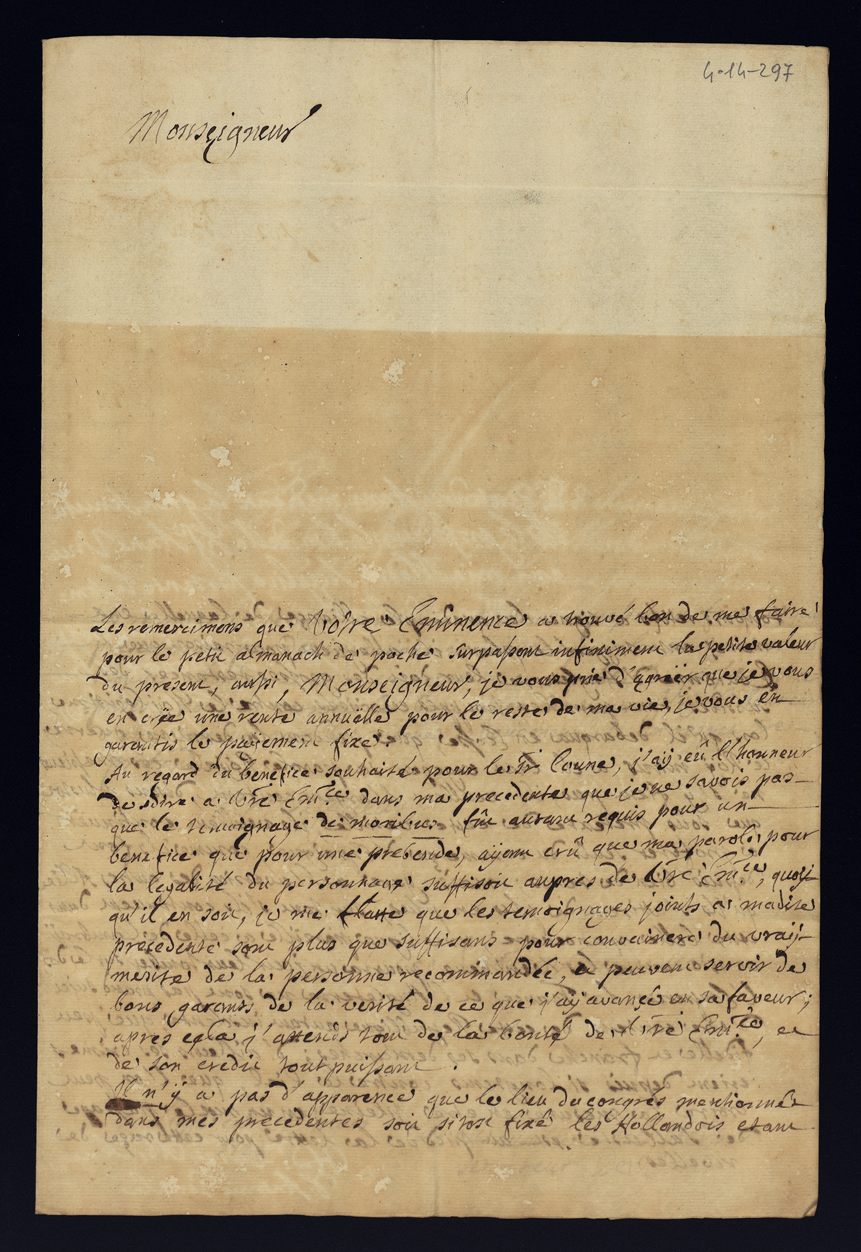 4-14-297
Monseigneur
Les remercimens que Votre Eminence a trouvé bon de me faire
pour le petit almanach de poche surpassent infiniment la petite valeur
du present, aussi, Monseigneur, je vous prie d'agréër que je vous
en crée une rente annuëlle pour le reste de ma vie, je vous en
garantis le païement fixe.
Au regard du benefice souhaité pour le Sr Coune, j'aÿ eû l'honneur
de dire a Vre Emce dans ma precedente que je ne savois pas
que le temoignage de moribus fut autant requis pour un
benefice que pour une prebende, ayent crû que ma parole pour
la legalité du personnage suffisoit aupres de Vre Emce, quoÿ
qu'il en soit, je me flatte que les temoignages joints a madite
precedente sont plus que suffisans pour convaincre du vraÿ
merite de la personne recommandée, et peuvent servir de
bons garants de la verité de ce que j'aÿ avancé en sa faveur;
apres cela j'attends tout de la bonté de Vre Emce, et
de son credit tout puissant.
Il n'ÿ a pas d'apparence que le lieu du congres mentionné
dans mes precedentes soit sitost fixé les Hollandois etant